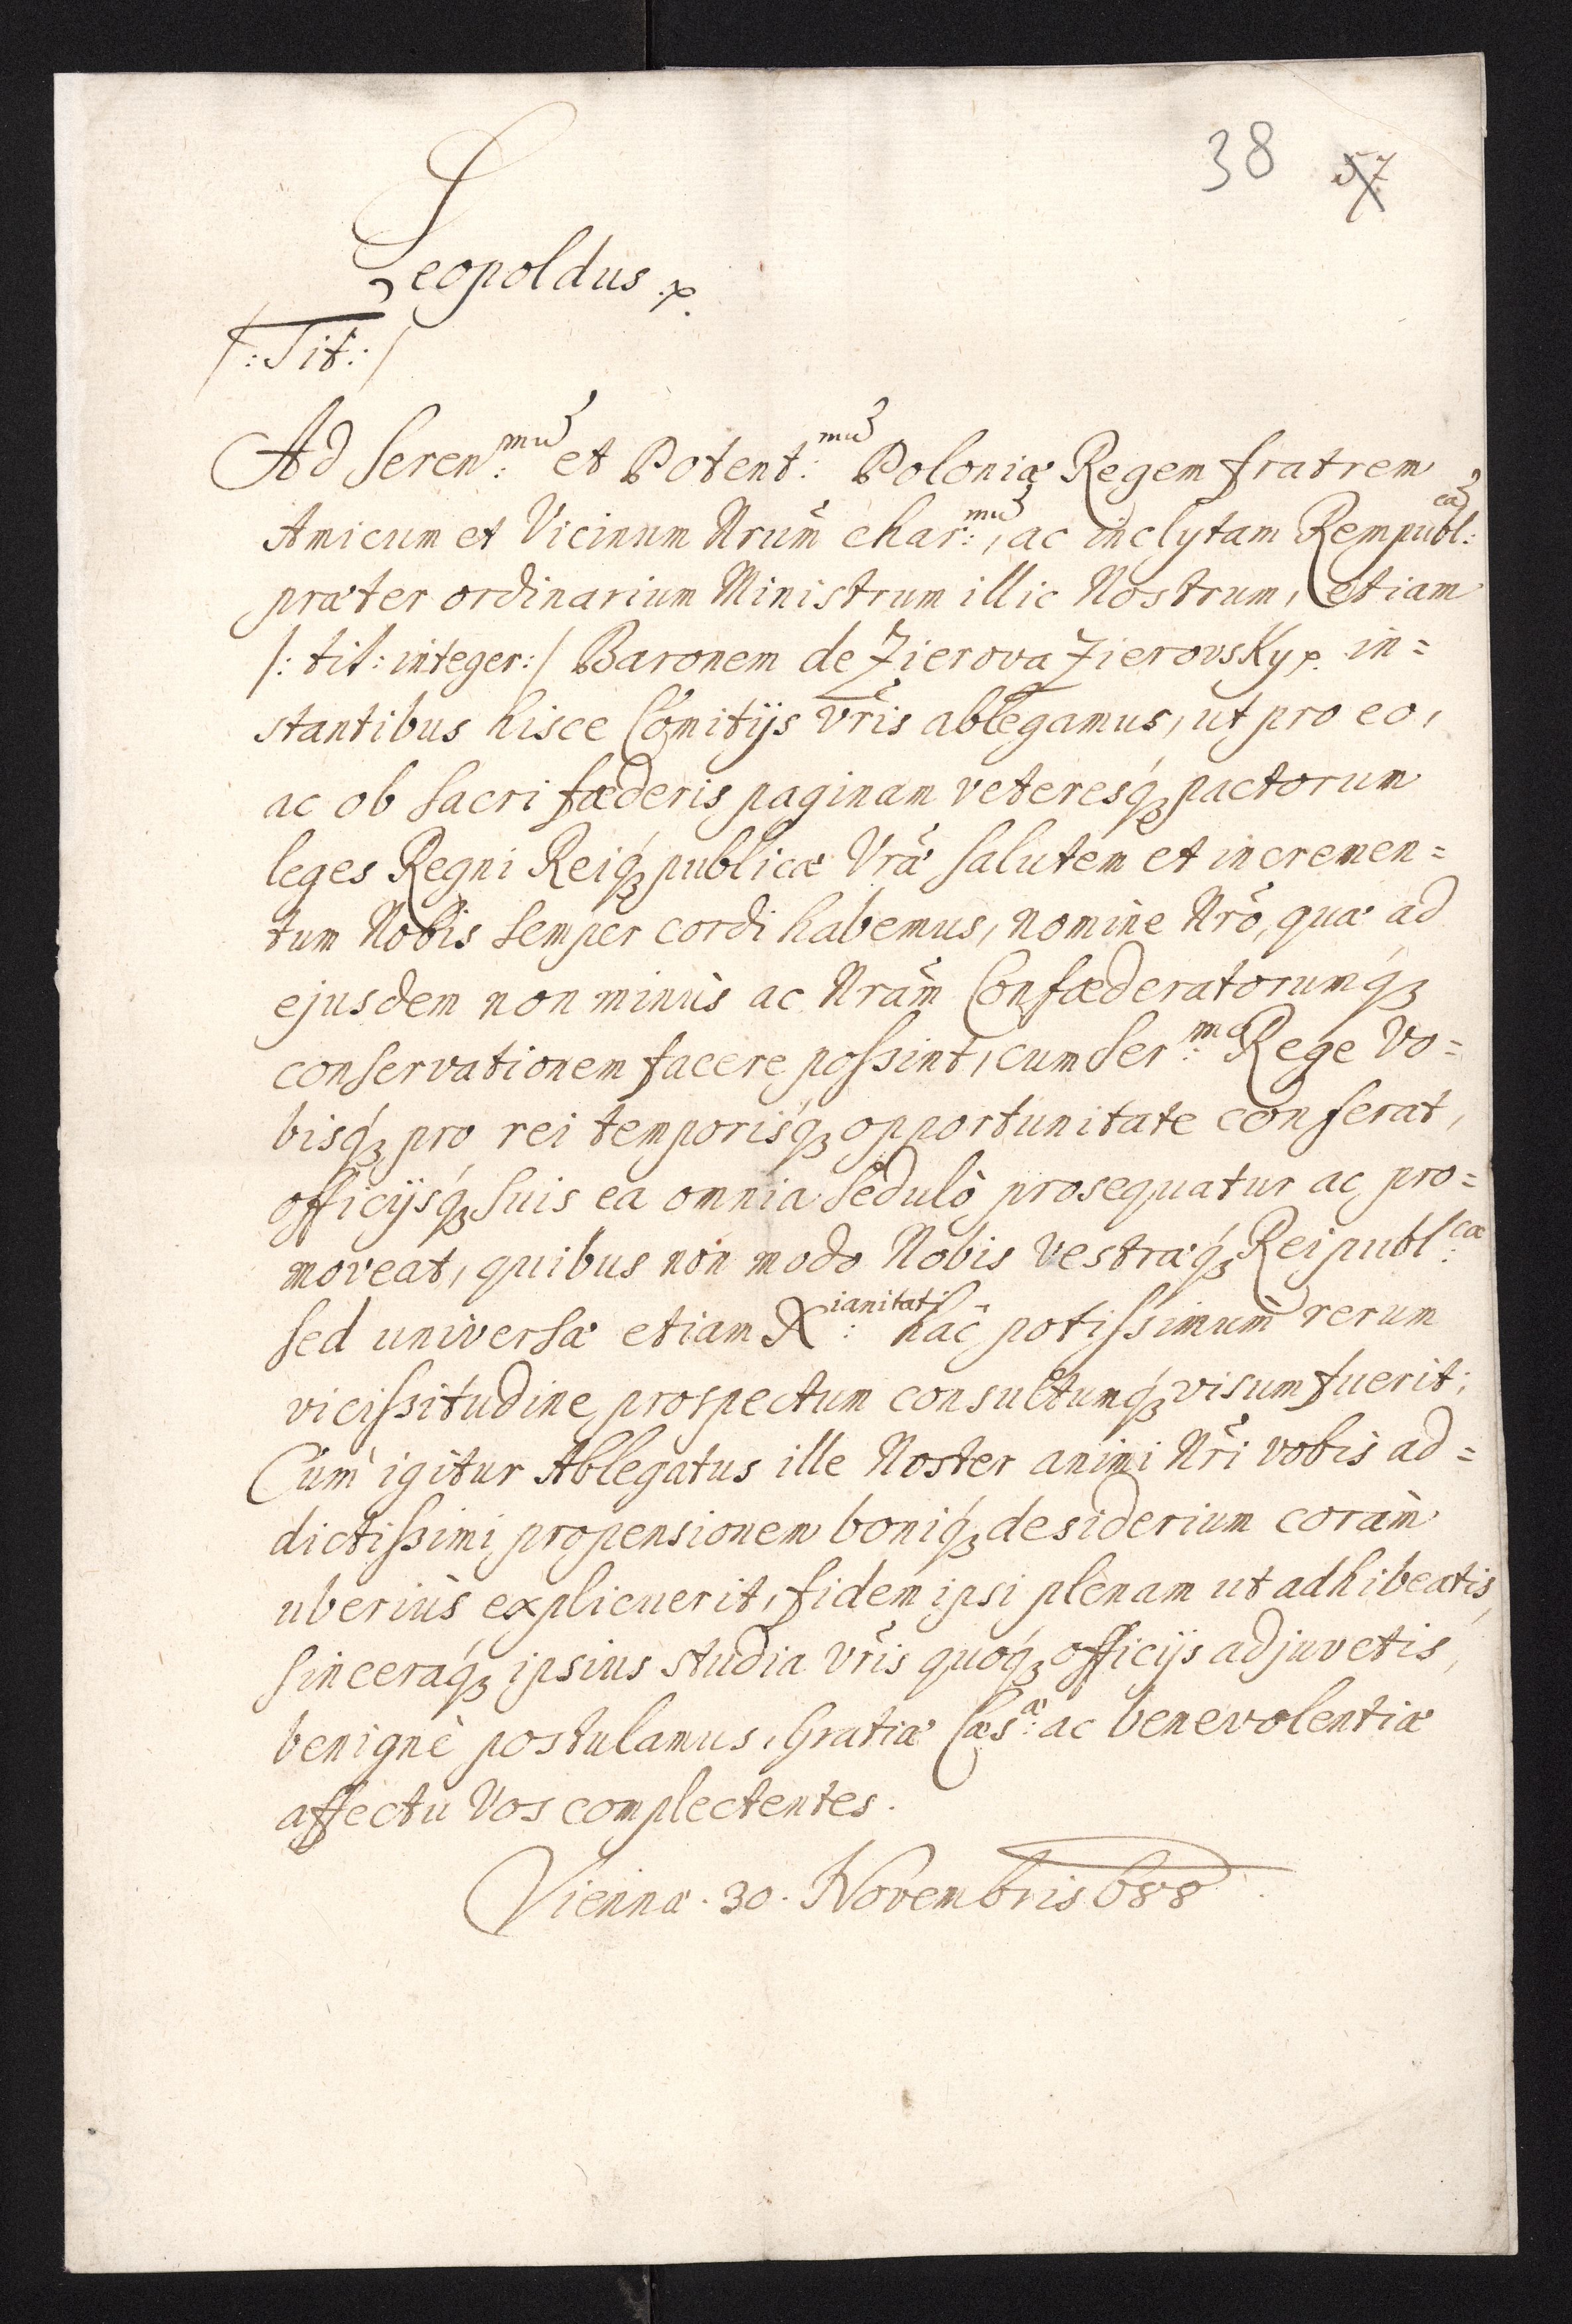 38 57
Leopoldus
/: Tit: /
Ad Seren:mũ et Potent:mũ Poloniæ Regem fratrem
Amicum et Vicinum Nrum̃ char:mũ, ac inclytam Rempubl:cã
præter ordinarium Ministrum illic Nostrum, etiam
/: tit: integer: / Baronem de Zierova Zierovsky in=
stantibus hisce Comitijs vr̃is ablegamus, ut pro eo,
ac ob sacri fæderis paginam veteresq́3 pactorum
leges Regni Reiq́3 publicæ Vræ̃ salutem et incremen=
tum Nobis semper cordi habemus, nomine Nrõ, quæ ad
ejusdem non minùs ac Nram̃ Confæderatorumq́3
conservationem facere possint, cum Ser:mo Rege Vo=
bisq́3 pro rei temporisq́3 opportunitate conferat,
officijsq́3 suis ea omnia sedulò prosequatur ac pro=
moveat, quibus non modo Nobis vestræq́3 Reipubl:cæ
sed universæ etiam X:ianitati hac potissimum̀ rerum
vicissitudine prospectum consultumq́3 visum fuerit;
Cùm igitur Ablegatus ille Noster animi Nr̃i vobis ad=
dictissimi propensionem boniq́3 desiderium coràm
uberiùs explicuerit, fidem ipsi plenam ut adhibeatis,
sinceraq́3 ipsius studia vr̃is quoq́3 officijs adjuvetis,
benignè postulamus, Gratiæ Cæs:æ ac benevolentiæ
affectu Vos complectentes.
Viennæ. 30. Novembris 688